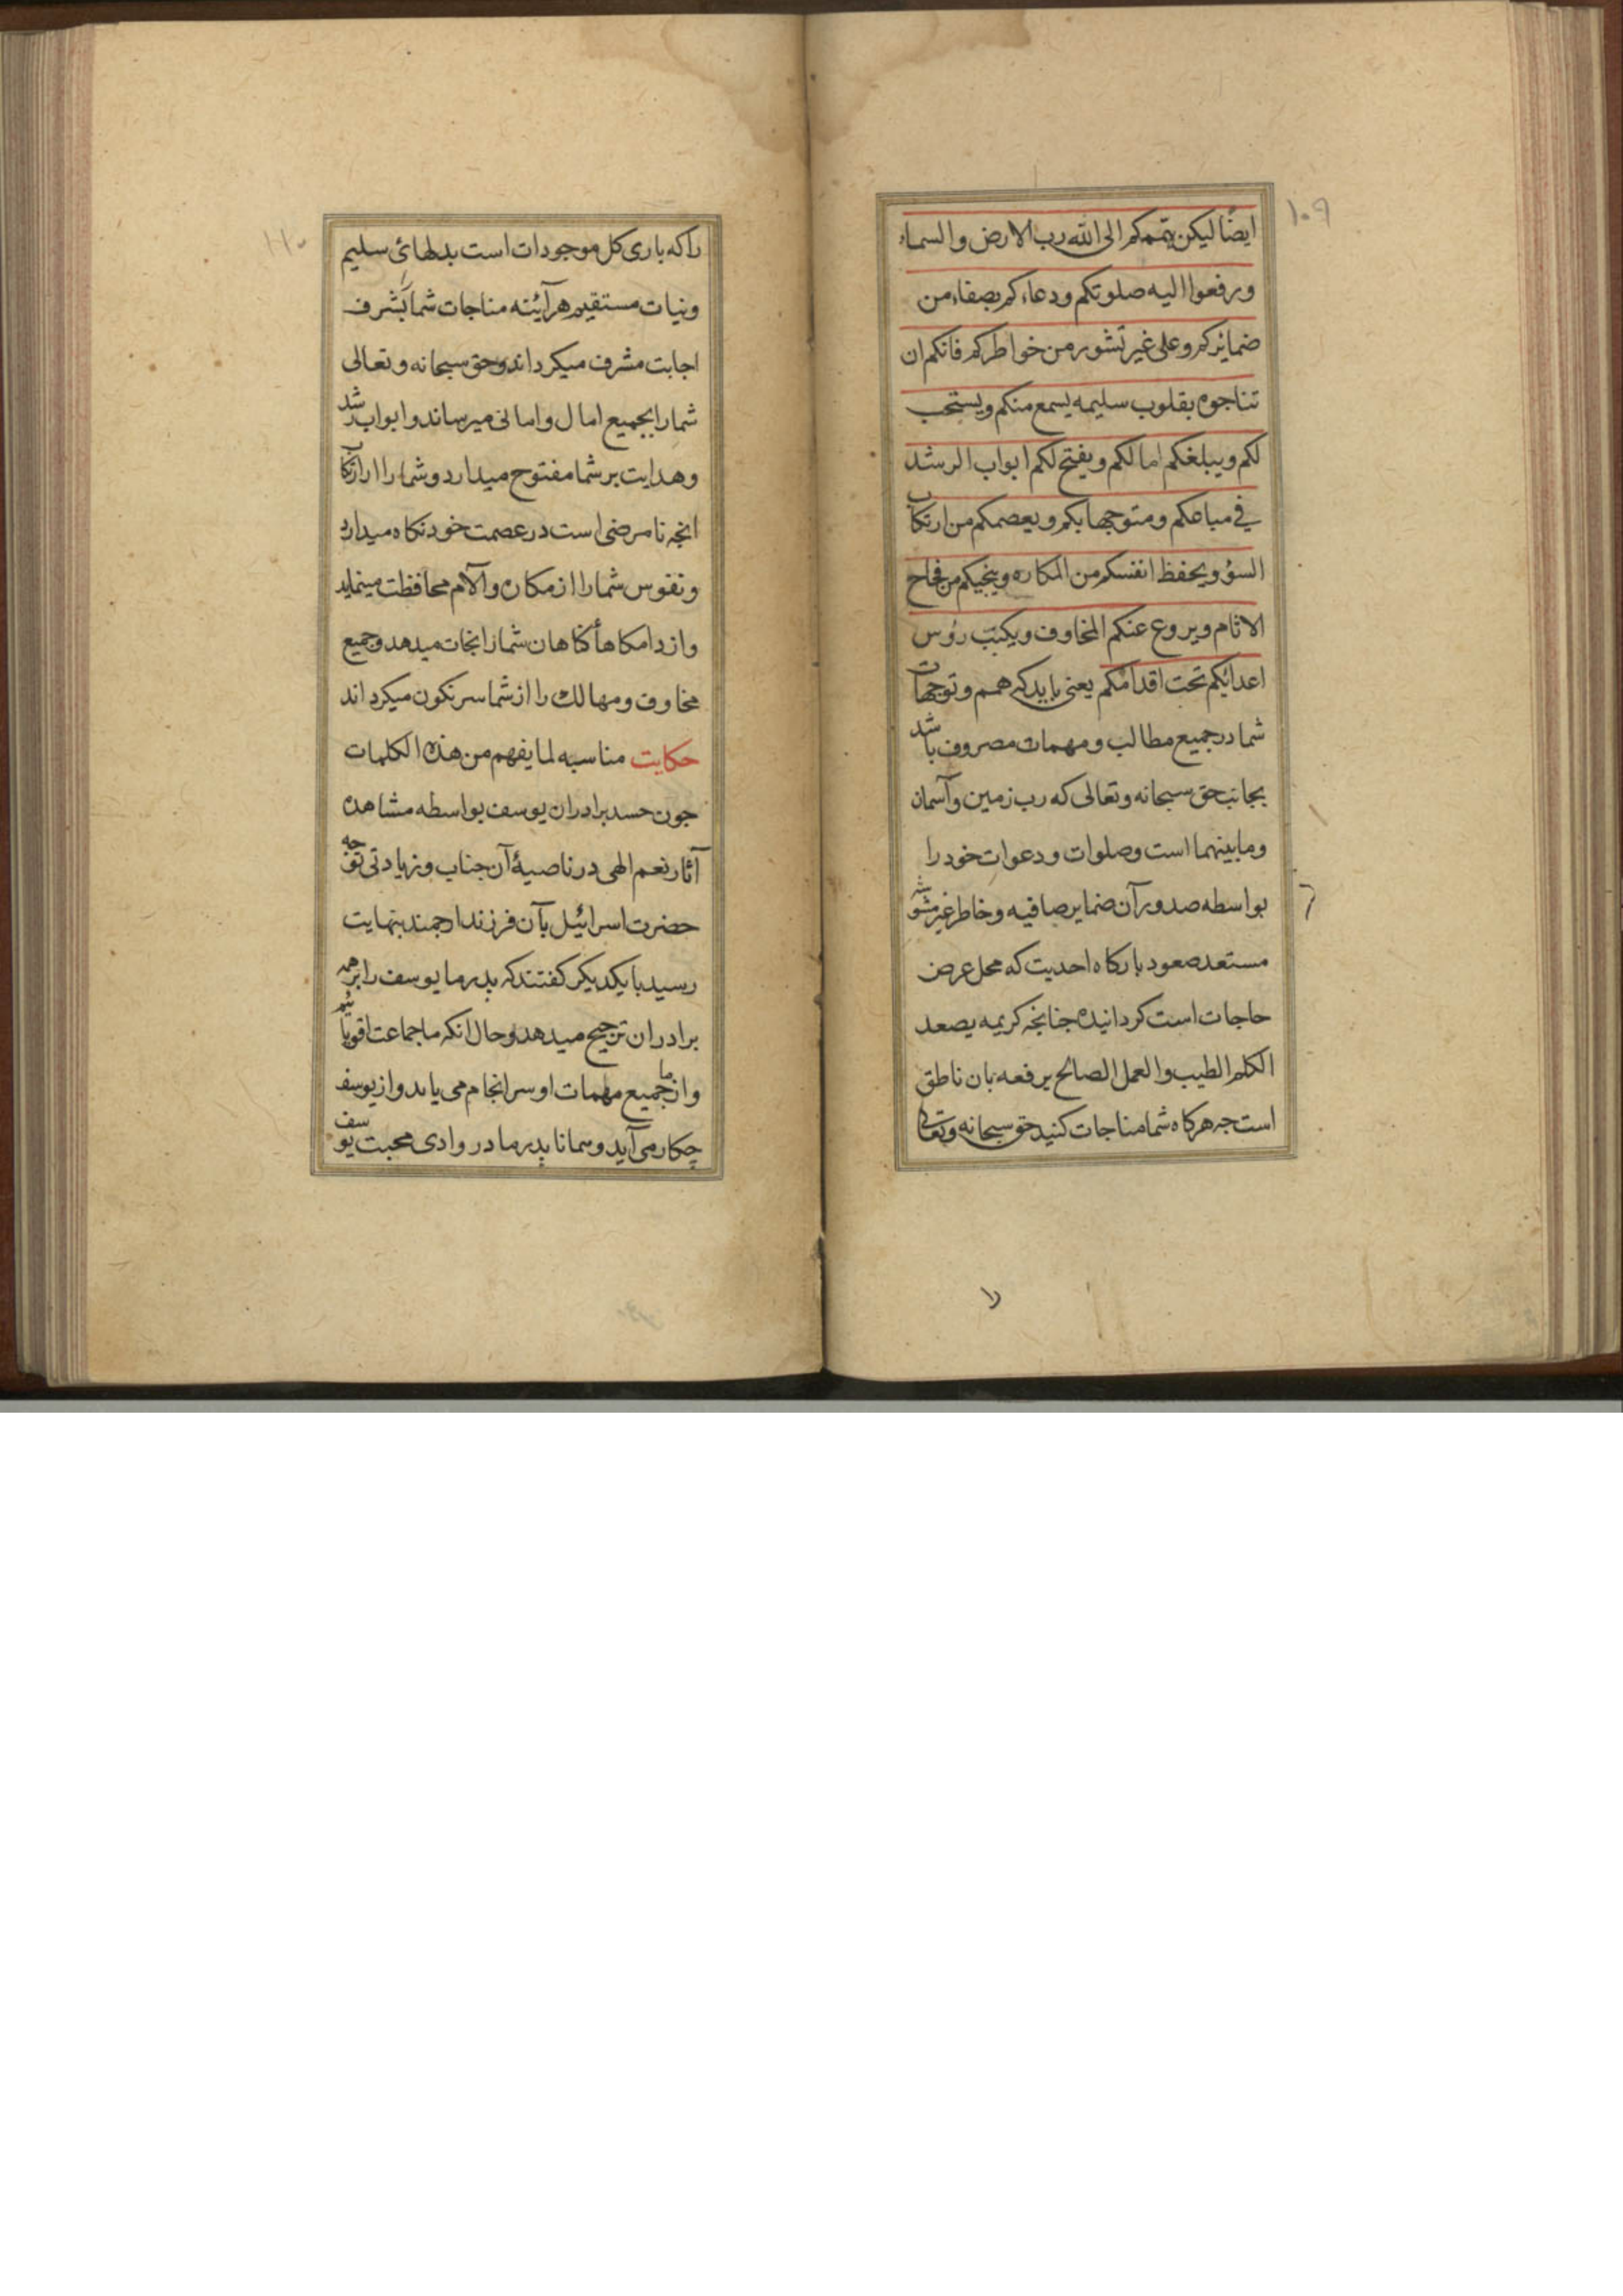 ۱۰۹
ایضًا لیکن یتمسکم الی الله رب الارض والسماء
ورفعوا الیه صلوتکم ودعاءکم بصفاء من
ضمائرکم وعلی غیر تشور من خواطرکم فانکم ان
تناجوه بقلوب سلیمه یسمع منکم ویستجب
لکم ویبلغکم امالکم ویفتح لکم ابواب الرشد
فی مباعکم ومتوجهابکم ویعصمکم من ارتکاب
السؤ ویحفظ انفسکم من المکاره وینجیکم من فخاخ
الاثام ویروع عنکم المخاوف ویکبّب رؤس
اعدائکم تحت اقدامکم یعنی باید که همم وتوجهات
شما در جمیع مطالب ومهمات مصروف باشد
بجانب حق سبحانه وتعالی که رب زمین وآسمان
وما بینهما است وصلوات ودعوات خود را
بواسطه صدور آن ضمایر صافیه وخاطر غیر مشوشه
مستعد صعود بارکاه احدیت که محل عرض
حاجات است کردانیده جنانجه کریمه یصعد
الکلم الطیب والعمل الصالح یرفعه بان ناطق
است جه هرکاه شما مناجات کنید حق سبحانه وتعالی
را
۱۱۰
راکه باری کل موجودات است بدلهائی سلیم
ونیات مستقیم هر آئینه مناجات شما بشرف
اجابت مشرف میکرداند وحق سبحانه وتعالی
شما را بجمیع امال وامانی میرساند وابواب رشد
وهدایت بر شما مفتوح میدارد وشما را از ارتکاب
انجه نامرضی است در عصمت خود نکاه میدارد
ونفوس شما را از مکاره والآم محافظت مینماید
واز دامکاهأ کناهان شما را نجات میدهد وجمیع
مخاوف ومهالک را از شما سرنکون میکرداند
حکایت مناسبه لما یفهم من هذه الکلمات
جون حسد برادران یوسف بواسطه مشاهده
آثار نعم الهی در ناصیهٔ آن جناب وزیادتی توجه
حضرت اسرائیل بآن فرزند ارجمند بنهایت
رسید با یکدیکر کفتند که پدر ما یوسف را بر همه
برادران ترجیح میدهد وحال انکه ما جماعت اقویائیم
واز ما جمیع مهمات او سرانجام می یابد واز یوسف
چکار می آید وهمانا پدر ما در وادی محبت یوسف